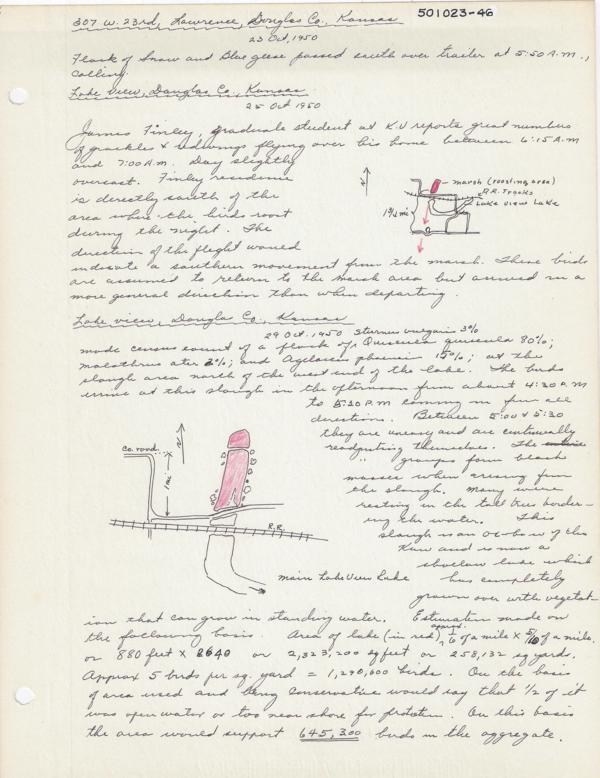 307 W. 23rd, Lawrence, Douglas Co., Kansas
501023-46
23 Oct, 1950
Flock of Snow and Blue geese passed south over trailer at 5:50 A.M.,
calling.
Lake View, Douglas Co., Kansas
25 Oct 1950
James Finley, graduate student at K.U reports great numbers
of grackles & redwings flying over his home between 6:15 A.M
and 7:00 A.M. Day slightly
overcast. Finley residence
is directly south of the
area where the birds roost
during the night. The
direction of the flight would
marsh (roosting area)
R.R. Tracks
Lake View Lake
1 3/4 mi
N
indicate a southern movement from the marsh. These birds
are assumed to return to the marsh area but arrived in a
more general direction than when departing.
Lake view, Douglas Co., Kansas
29 Oct. 1950 Sturnus vulgaris 3%
made census count of a flock of: Quiscalus quiscula 80%;
molothrus ater 2%; and Agelaius phoenicus 15%; at the
slough area north of the west end of the lake. The birds
arrive at this slough in the afternoon from about 4:30 P.M
to 5:30 P.M coming in from all
direction. Between 5:00 & 5:30
they are uneasy and are continually
readjusting themselves. The
" groups form black
masses when arising from
the slough. Many were
resting in the tall trees border-
ing the water. This
slough is an ox-bow of the
Kaw and is now a
shallow lake which
has completely
grown over with vegetat-
Co. road.
N
1 mi
R.R.
main Lake View Lake
ion that can grow in standing water. Estimation made on
the following basis. Area of lake (in red), approx. 1/6 of a mile x 5/10 of a mile.
or 880 feet x 2640 or 2,323,200 sq feet or 258,132 sq yards.
Approx 5 birds per sq. yard = 1,290,600 birds. On the basis
of area used and being conservative would say that 1/2 of it
was open water or too near shore for protection. On this basis
the area would support 645,300 birds in the aggregate.